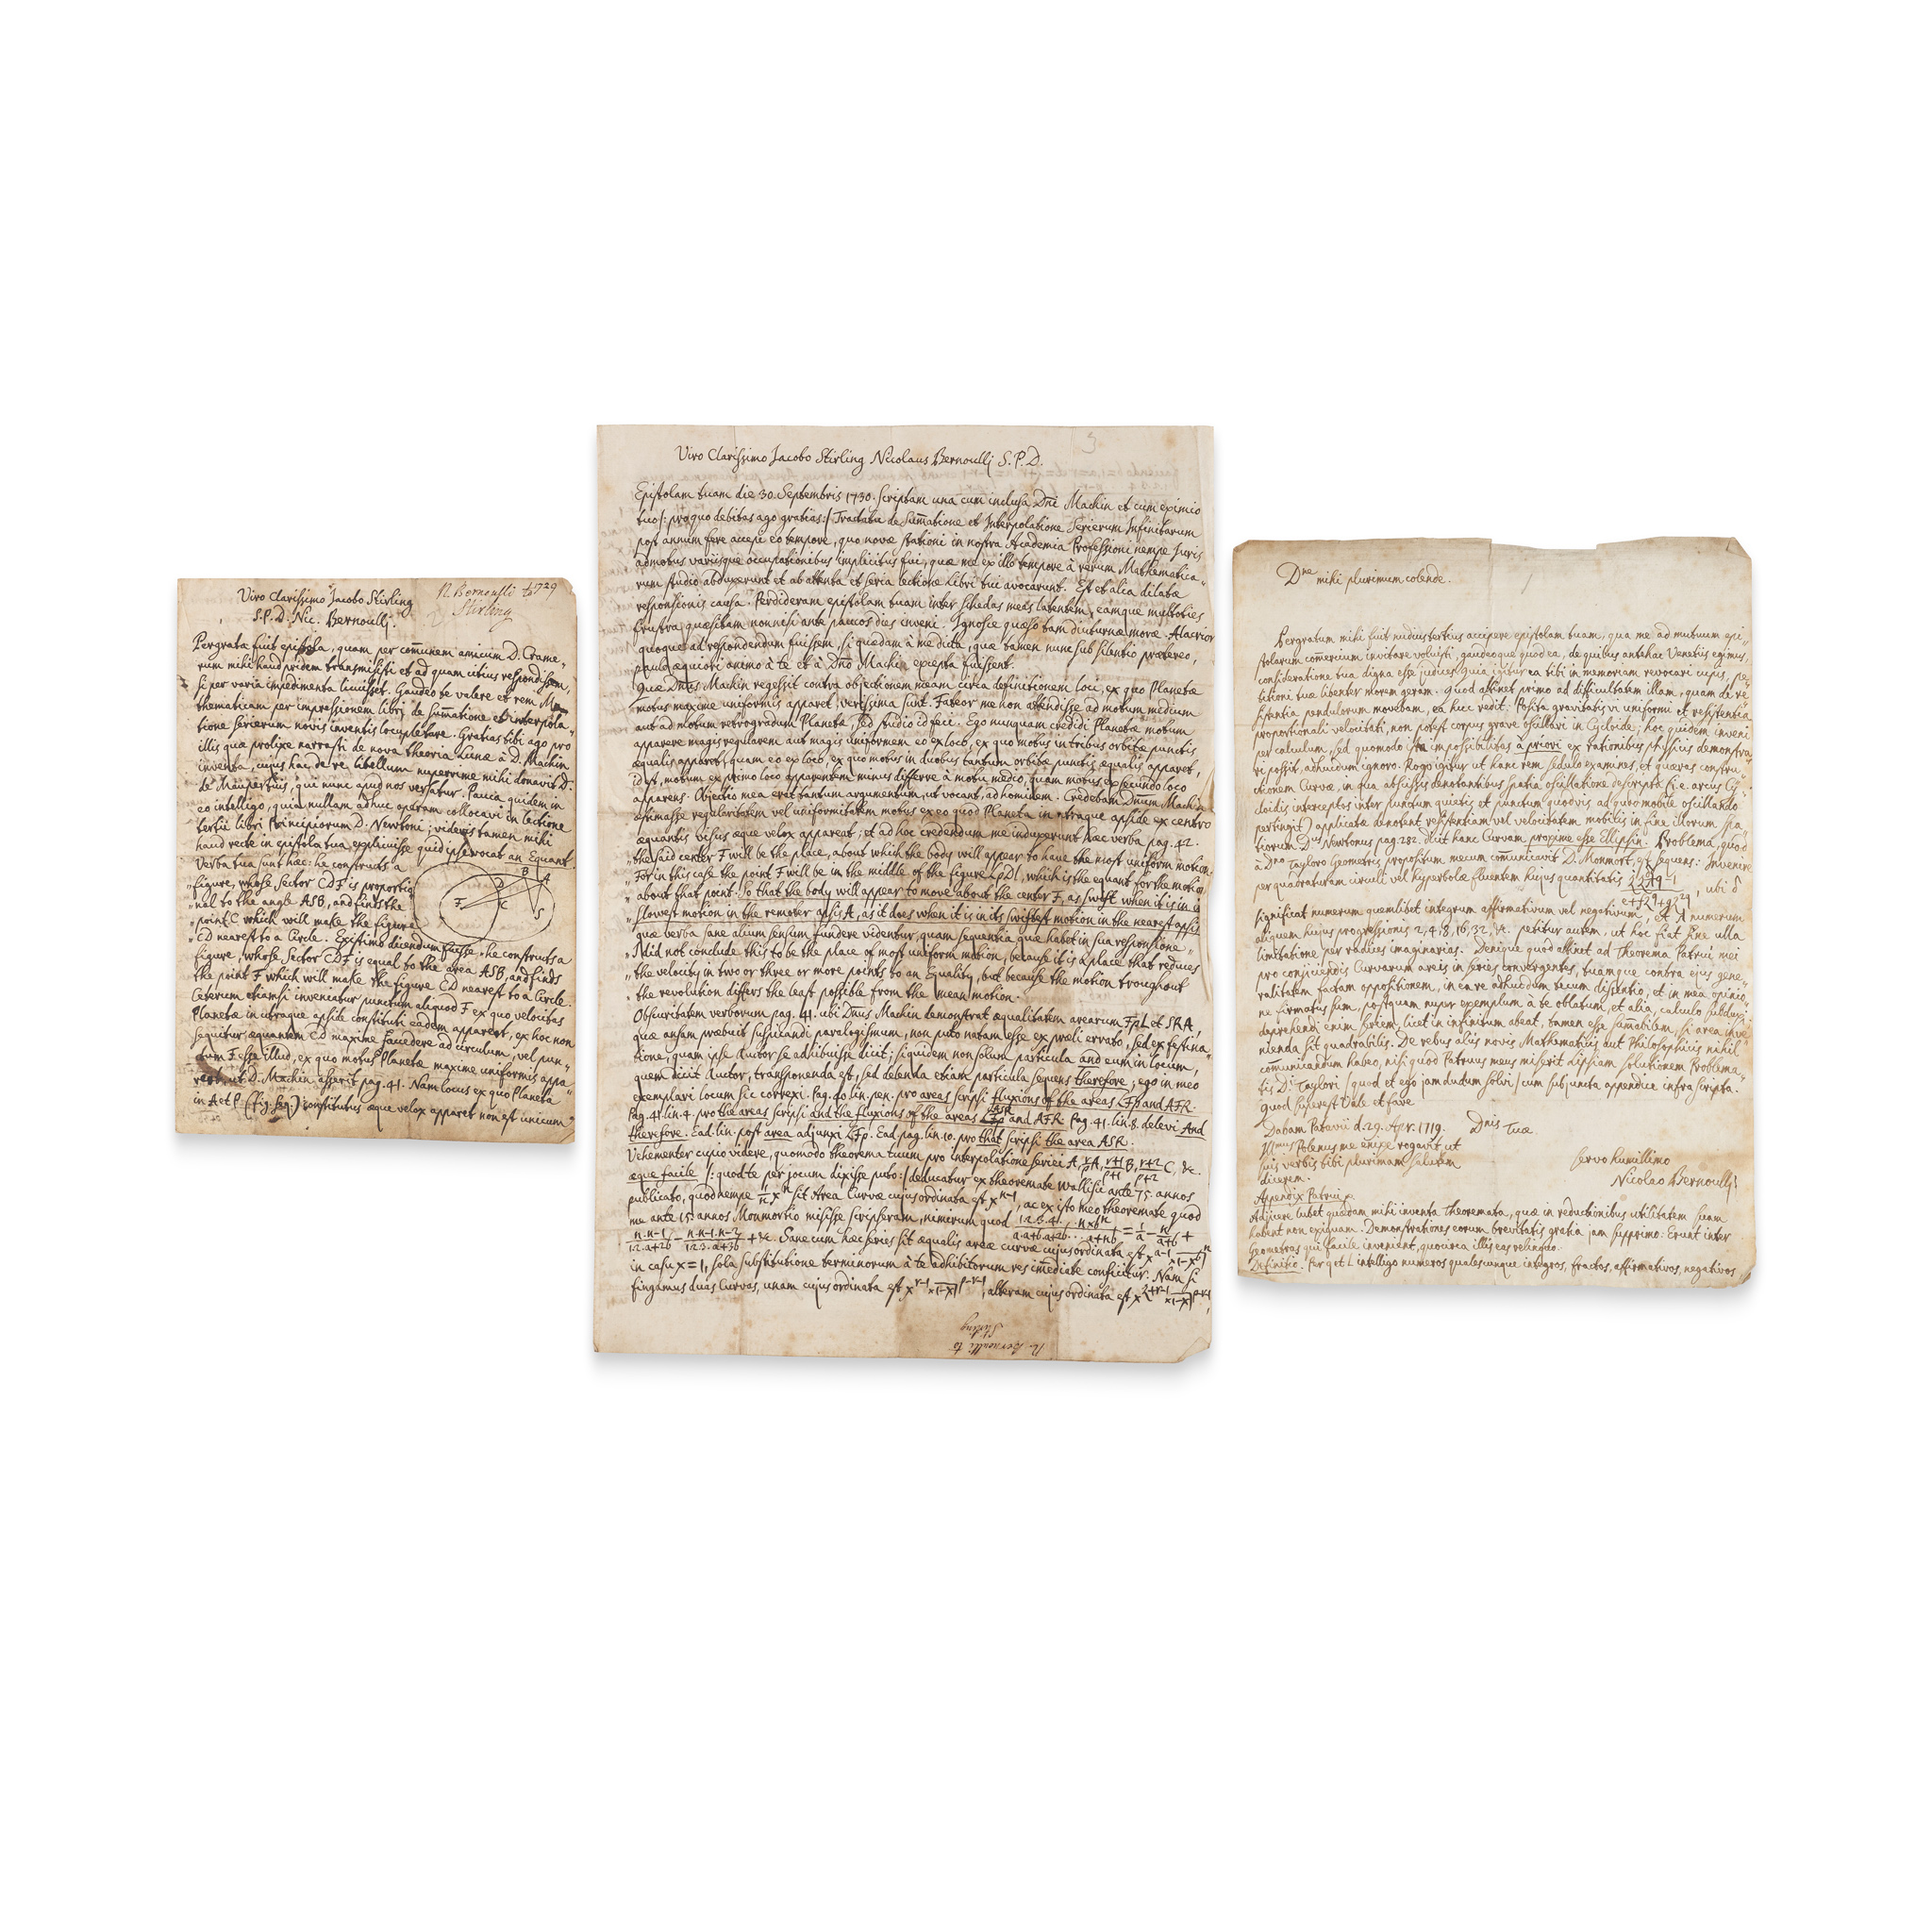 Viro Clarissimo Jacobo Stirling
S.P.D. Nic. Bernoulli.
N Bernoulli to 1729
Stirling
Pergrata fuit epistola, quam per com̄unem amicum D. Crame-
rum mihi haud pridem transmisisti et ad quam citius respondissem,
si per varia impedimenta licuisset. Gaudeo te valere et rem Ma
thematicam per impressionem libri de Sum̄atione et interpola-
tione serierum novis inventis locupletare. Gratias tibi ago pro
illis quæ prolixe narrasti de nova theoria Lunæ à D. Machin
inventa, cujus hac de re libellum nuperrime mihi donavit D.
de Maupertuis, qui nunc apud nos versatur. Pauca quidem in
eo intelligo, quia nullam adhuc operam collocavi in lectione
tertii libri Principiorum D. Newtoni; videris tamen mihi
haud recte in epistola tua explicuisse quid ipse vocat an Equant.
Verba tua sunt hæc: he constructs a
„figure, whose Sector CDF is proportio
„nal to the angle ASB, and finds the
„point C which will make the figure
„CD nearest to a Circle. Existimo dicendum fuisse, he constructs a
figure, whose Sector CDF is equal to the area ASB, and finds
the point F which will make the figure CD nearest to a Circle.
Ceterum etiamsi inveniatur punctum aliquod F ex quo velocitas
Planetæ in utraque apside constituti eadem appareat, ex hoc non
sequitur æquantem CD maxime accedere ad circulum, vel pun-
ctum F esse illud, ex quo motus Planetæ maxime uniformis appa-
reat, ut D. Machin asserit pag. 41. Nam locus ex quo Planeta
in A et P (fig. seq.) constitutus æque velox apparet non est unicum
F D B A C S
3
Viro Clarissimo Jacobo Stirling Nicolaus Bernoulli S.P.D.
Epistolam tuam die 30. Septembris 1730. scriptam una cum inclusa Dn̄i Machin et cum eximio
tuo /: pro quo debitas ago gratias :/ Tractatu de Sum̄atione et Interpolatione Serierum Infinitarum
post annum fere accepi eo tempore, quo novæ stationi in nostra Academia Professioni nempe Juris
admotus variisque occupationibus implicitus fui, quæ me ex illo tempore à rerum Mathematica-
rum studio abduxerunt et ab attenta et seria lectione Libri tui avocarunt. Est et alia dilatæ
responsionis causa. Perdideram epistolam tuam inter schedas meas latentem, eamque multoties
frustra quæsitam nonnisi ante paucos dies inveni. Ignosce quæso tam diuturnæ moræ. Alacrior
quoque ad respondendum fuissem, si quædam à me dicta, quæ tamen nunc sub silentio prætereo,
paulo æquiori animo à te et à Dn̄o Machin excepta fuissent.
Quæ Dn̄us Machin regessit contra objectionem meam circa definitionem loci, ex quo Planetæ
motus maxime uniformis apparet, verissima sunt. Fateor me non attendisse ad motum medium
aut ad motum retrogradum Planetæ, sed studio id feci. Ego nunquam credidi Planetæ motum
apparere magis regularem aut magis uniformem eo ex loco, ex quo motus in tribus orbitæ punctis
æqualis apparet, quam eo ex loco, ex quo motus in duobus tantum orbitæ punctis æqualis apparet,
id est, motum ex primo loco apparentem minus differre à motu medio, quam motus ex secundo loco
apparens. Objectio mea erat tantum argumentum, ut vocant, ad hominem. Credebam Dn̄um Machin
æstimasse regularitatem vel uniformitatem motus ex eo quod Planeta in utraque apside ex centro
æquantis visus æque velox appareat; et ad hoc credendum me induxerunt hæc verba pag. 42.
„the said center F will be the place, about which the body will appear to have the most uniform motion.
„For in this case the point F will be in the middle of the figure LpDl, which is the equant for the motion
„about that point. So that the body will appear to move about the center F, as swift when it is in its
„slowest motion in the remoter apsis A, as it does when it is in its swiftest motion in the nearest apsis
quæ verba sane alium sensum fundere videntur, quam sequentia quæ habet in sua responsione
„I did not conclude this to be the place of most uniform motion, because it is a place that reduces
„the velocity in two or three or more points to an Equality, but because the motion troughout
„the revolution differs the least possible from the mean motion.
Obscuritatem verborum pag. 41. ubi Dn̄us Machin demonstrat æqualitatem arearum FpL et SRA,
quæ ansam præbuit suspicandi paralogismum, non puto natam esse ex preli errato, sed ex festina-
tione, quam ipse Auctor se adhibuisse dicit; siquidem non solum particula and eum in locum,
quem dicit Auctor, transponenda est, sed delenda etiam particula sequens therefore; ego in meo
exemplari locum sic correxi. Pag. 40. lin. pen. pro areas scripsi fluxions of the areas LFp and AFR.
Pag. 41. lin. 4. pro the areas scripsi and the fluxions of the areas LFp and AFR. Pag. 41. lin. 8. delevi And
therefore. Ead. lin. post area adjunxi LFp. Ead. pag. lin. 10. pro that scripsi the area ASR.
Vehementer cupio videre, quomodo theorema tuum pro interpolatione seriei A, r/p A, r+1/p+1 B, r+2/p+2 C, &c.
æque facile /: quod te per jocum dixisse puto :/ deducatur ex theoremate Wallisii ante 75. annos
publicato, quod nempe 1/n x^n sit Area Curvæ cujus ordinata est x^n-1, ac ex isto meo theoremate quod
me ante 15. annos Monmortio misisse scripseram, nimirum quod 1.2.3.4.....n×b^n/a.a+b.a+2b...a+nb = 1/a − n/a+b +
n.n-1/1.2.a+2b − n.n-1.n-2/1.2.3.a+3b + &c. Sane cum hæc series sit æqualis areæ curvæ cujus ordinata est x^a-1 ×1−x^b|^n
in casu x=1, sola substitutione terminorum à te adhibitorum res im̄ediate conficitur. Nam si
fingamus duas Curvas, unam cujus ordinata est x^r-1 ×1−x|^p-r-1, alteram cujus ordinata est x^z+r-1 ×1−x|^p-r-1,
N. Bernoulli to
Stirling
Dne mihi plurimum colende.
Pergratum mihi fuit nudiustertius accipere epistolam tuam, qua me ad mutuum epi-
stolarum com̄ercium invitare voluisti, gaudeoque quod ea, de quibus antehac Venetiis egimus,
consideratione tua digna esse judices. Quia igitur ea tibi in memoriam revocari cupis, pe-
titioni tuæ libenter morem geram. Quod attinet primo ad difficultatem illam, quam de re-
sistentia pendulorum movebam, ea huc redit. Posita gravitatis vi uniformi et resistentia
proportionali velocitati, non potest corpus grave oscillari in Cycloide; hoc quidem inveni
per calculum, sed quomodo ista impossibilitas à priori ex rationibus physicis demonstra-
ri possit, adhucdum ignoro. Rogo igitur ut hanc rem sedulo examines, et quæras constru-
ctionem Curvæ, in qua abscissis denotantibus spatia oscillatione descripta (i.e. arcus Cy-
cloidis interceptos inter punctum quietis et punctum quodvis ad quod mobile oscillando
pertingit) applicatæ denotent resistentiam vel velocitatem mobilis in fine illorum spa-
tiorum. Dnus Newtonus pag. 282. dicit hanc Curvam proxime esse Ellipsin. Problema, quod
à Dno Tayloro Geometris propositum mecum com̄unicavit D. Monmort, est sequens: Invenire
per quadraturam circuli vel hyperbolæ fluentem hujus quantitatis , ubi δ
significat numerum quemlibet integrum affirmativum vel negativum, et λ numerum
aliquem hujus progressionis 2, 4, 8, 16, 32, &c. petitur autem, ut hoc fiat sine ulla
limitatione per radices imaginarias. Denique quod attinet ad Theorema Patrui mei
pro conjiciendis Curvarum areis in series convergentes, tuamque contra ejus gene-
ralitatem factam oppositionem, in ea re adhucdum tecum dissentio, et in mea opinio-
ne firmatus sum, postquam nuper exemplum à te oblatum, et alia, calculo subduxi;
deprehendi enim seriem, licet in infinitum abeat, tamen esse sum̄abilem, si area inve-
nienda sit quadrabilis. De rebus aliis novis Mathematicis aut Philosophicis nihil
com̄unicandum habeo, nisi quod Patruus meus miserit Lipsiam solutionem Problema-
tis Dⁱ Taylori (quod et ego jamdudum solvi) cum subjuncta appendice infra scripta.
Quod superest Vale et fave
Dabam Patavii d. 29. Apr. 1719. Dnis Tuæ
Illmus Polenus me enixe rogavit ut
suis verbis tibi plurimam salutem
dicerem.
Servo humillimo
Nicolao Bernoulli
Appendix Patrui
Adjicere lubet quædam mihi inventa Theoremata, quæ in reductionibus utilitatem suam
habent non exiguam. Demonstrationes eorum brevitatis gratia jam supprimo: Erunt inter
Geometras qui facile invenient, quocirca illis eas relinquo.
Definitio. Per q et L intelligo numeros qualescunque integros, fractos, affirmativos, negativos